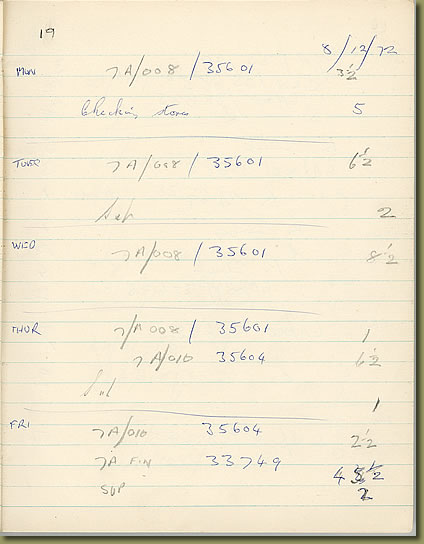 19
8/12/72
MON 7A/008/35601 3½
Checking stores 5
TUES 7A/008/35601 6½
2
WED 7A/008/35601 8½
THUR 7/A 008/35601 1
7A/010 35604 6½
1
FRI 7A/010 35604 2½
7A F.N 33749 4½
SUP 2